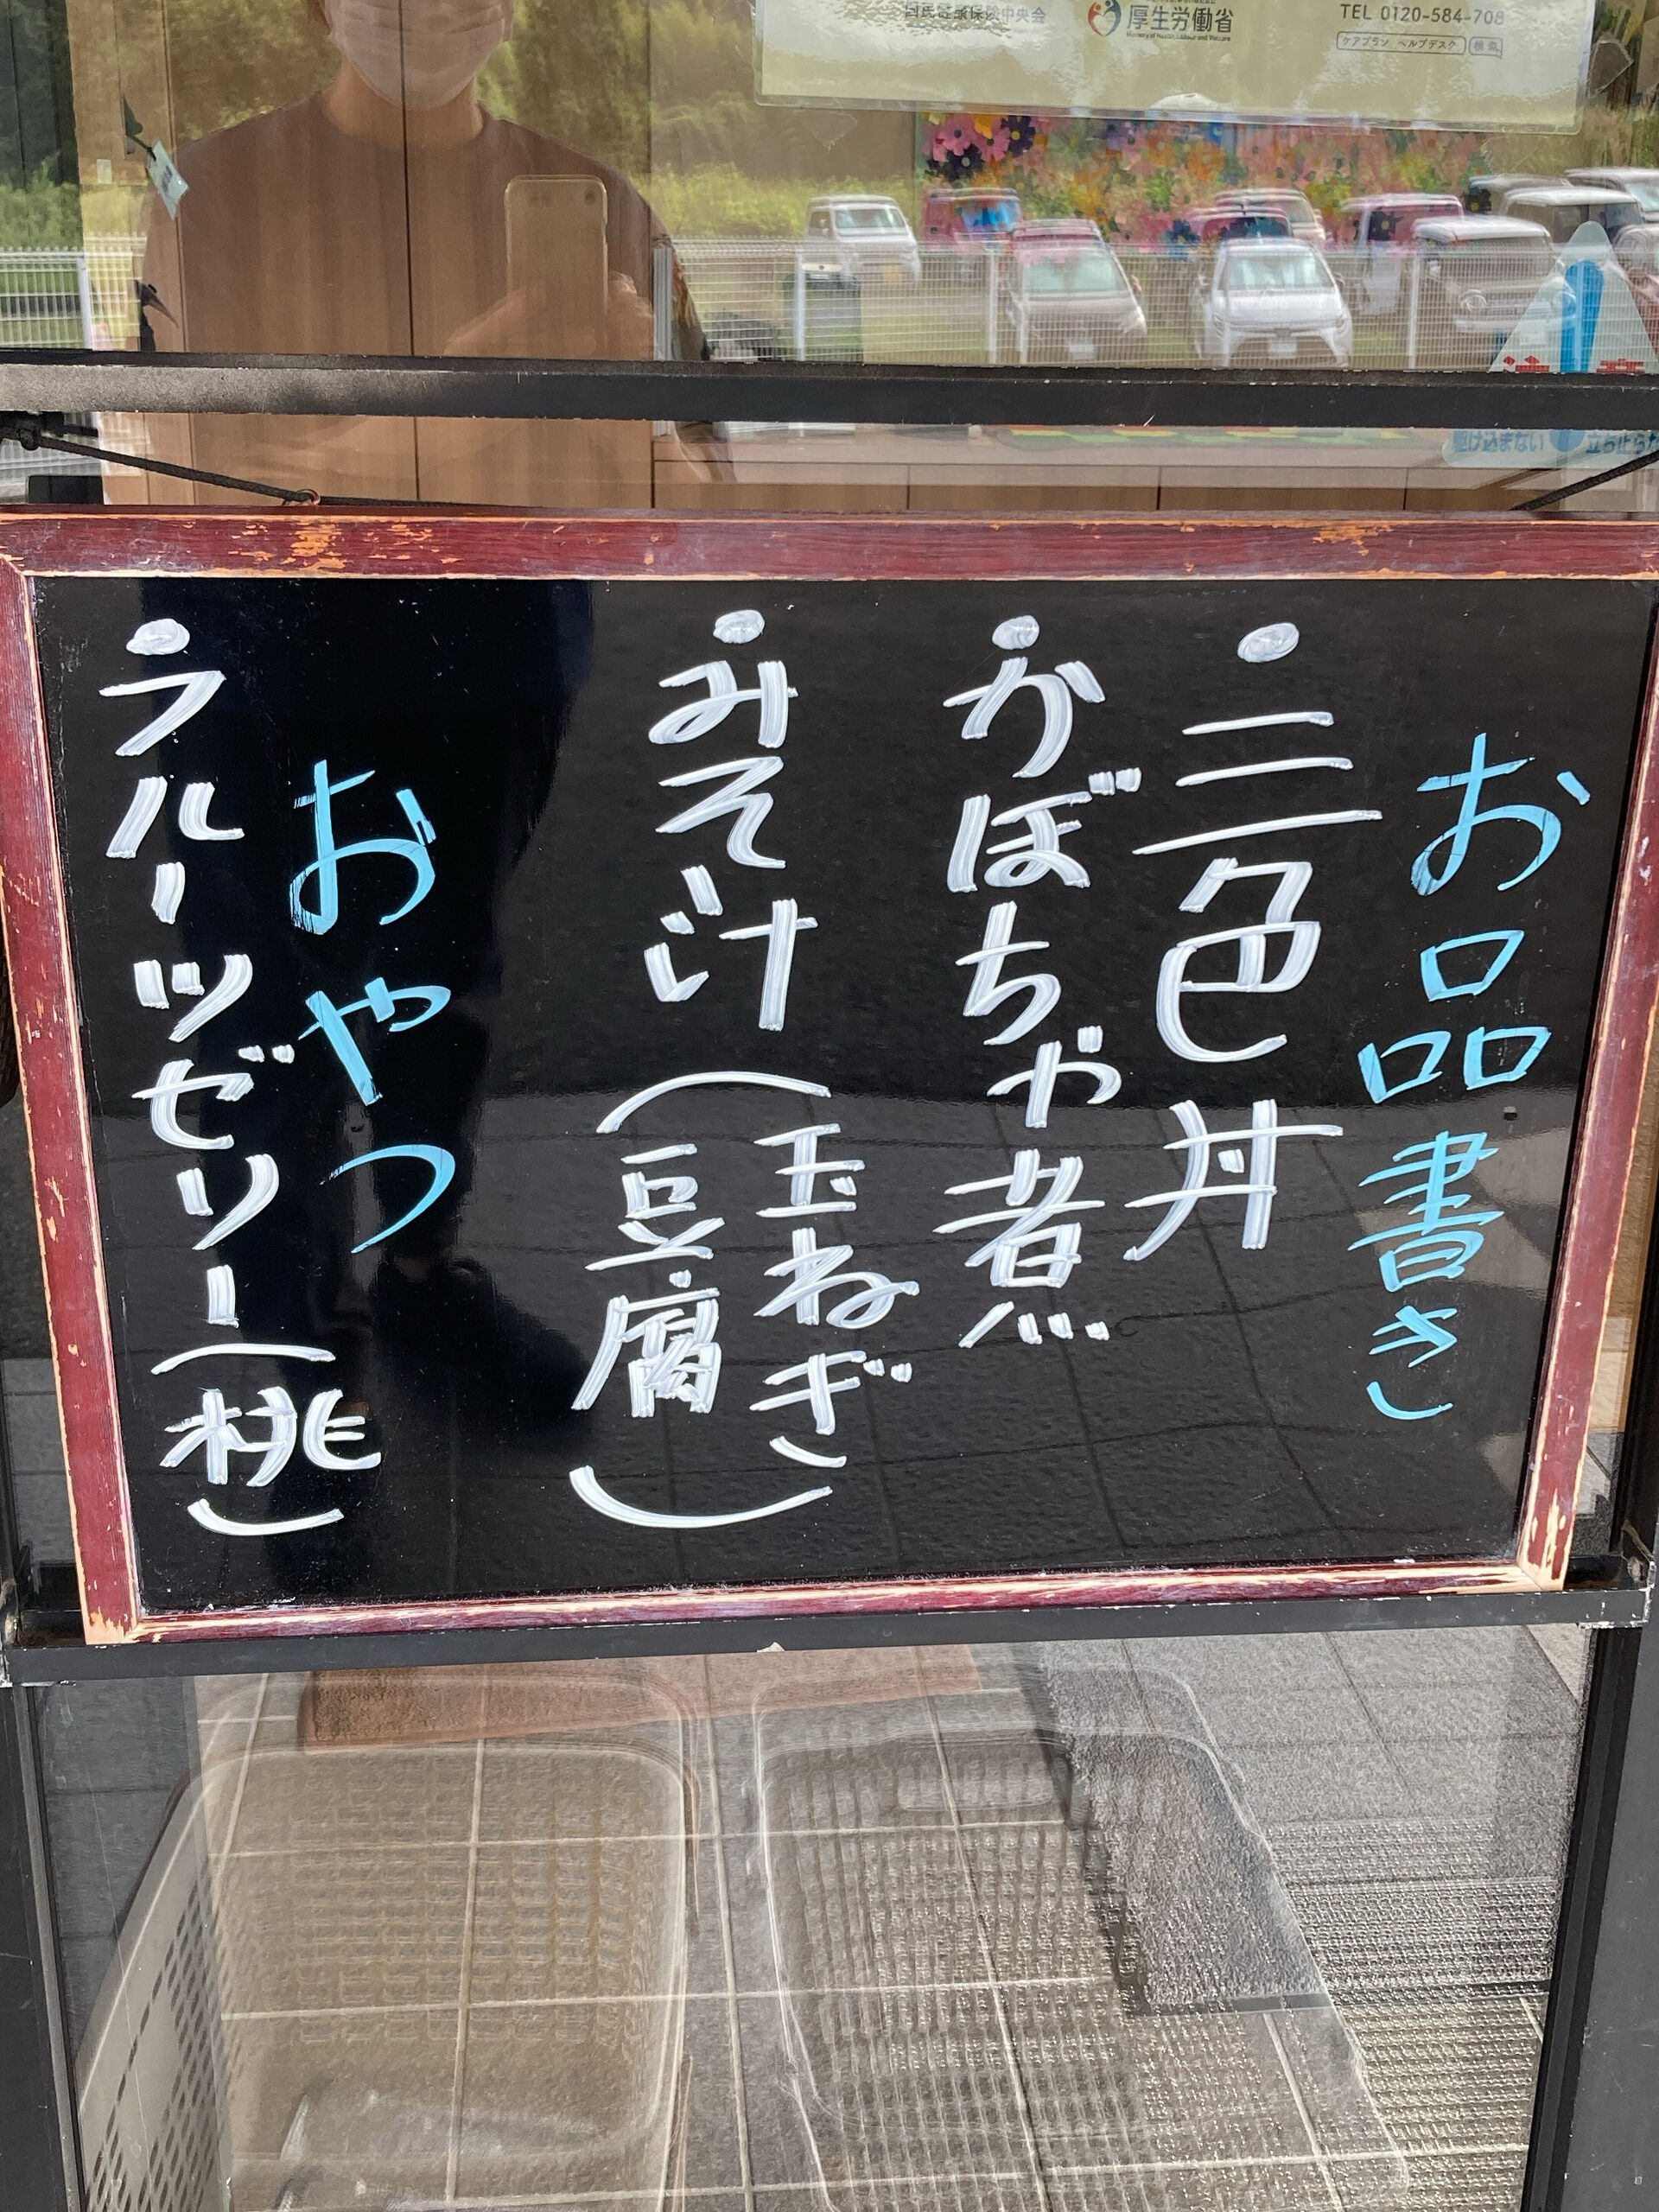 国民健康保険中央会
厚生労働省
Ministry of Health, Labour and Welfare
TEL 0120-584-708
ケアプラン ヘルプデスク 検索
駆け込まない
立ち止らな
お品書き
・三色丼
・かぼちゃ煮
・みそ汁(玉ねぎ)
(豆腐)
おやつ
・フルーツゼリー(桃)